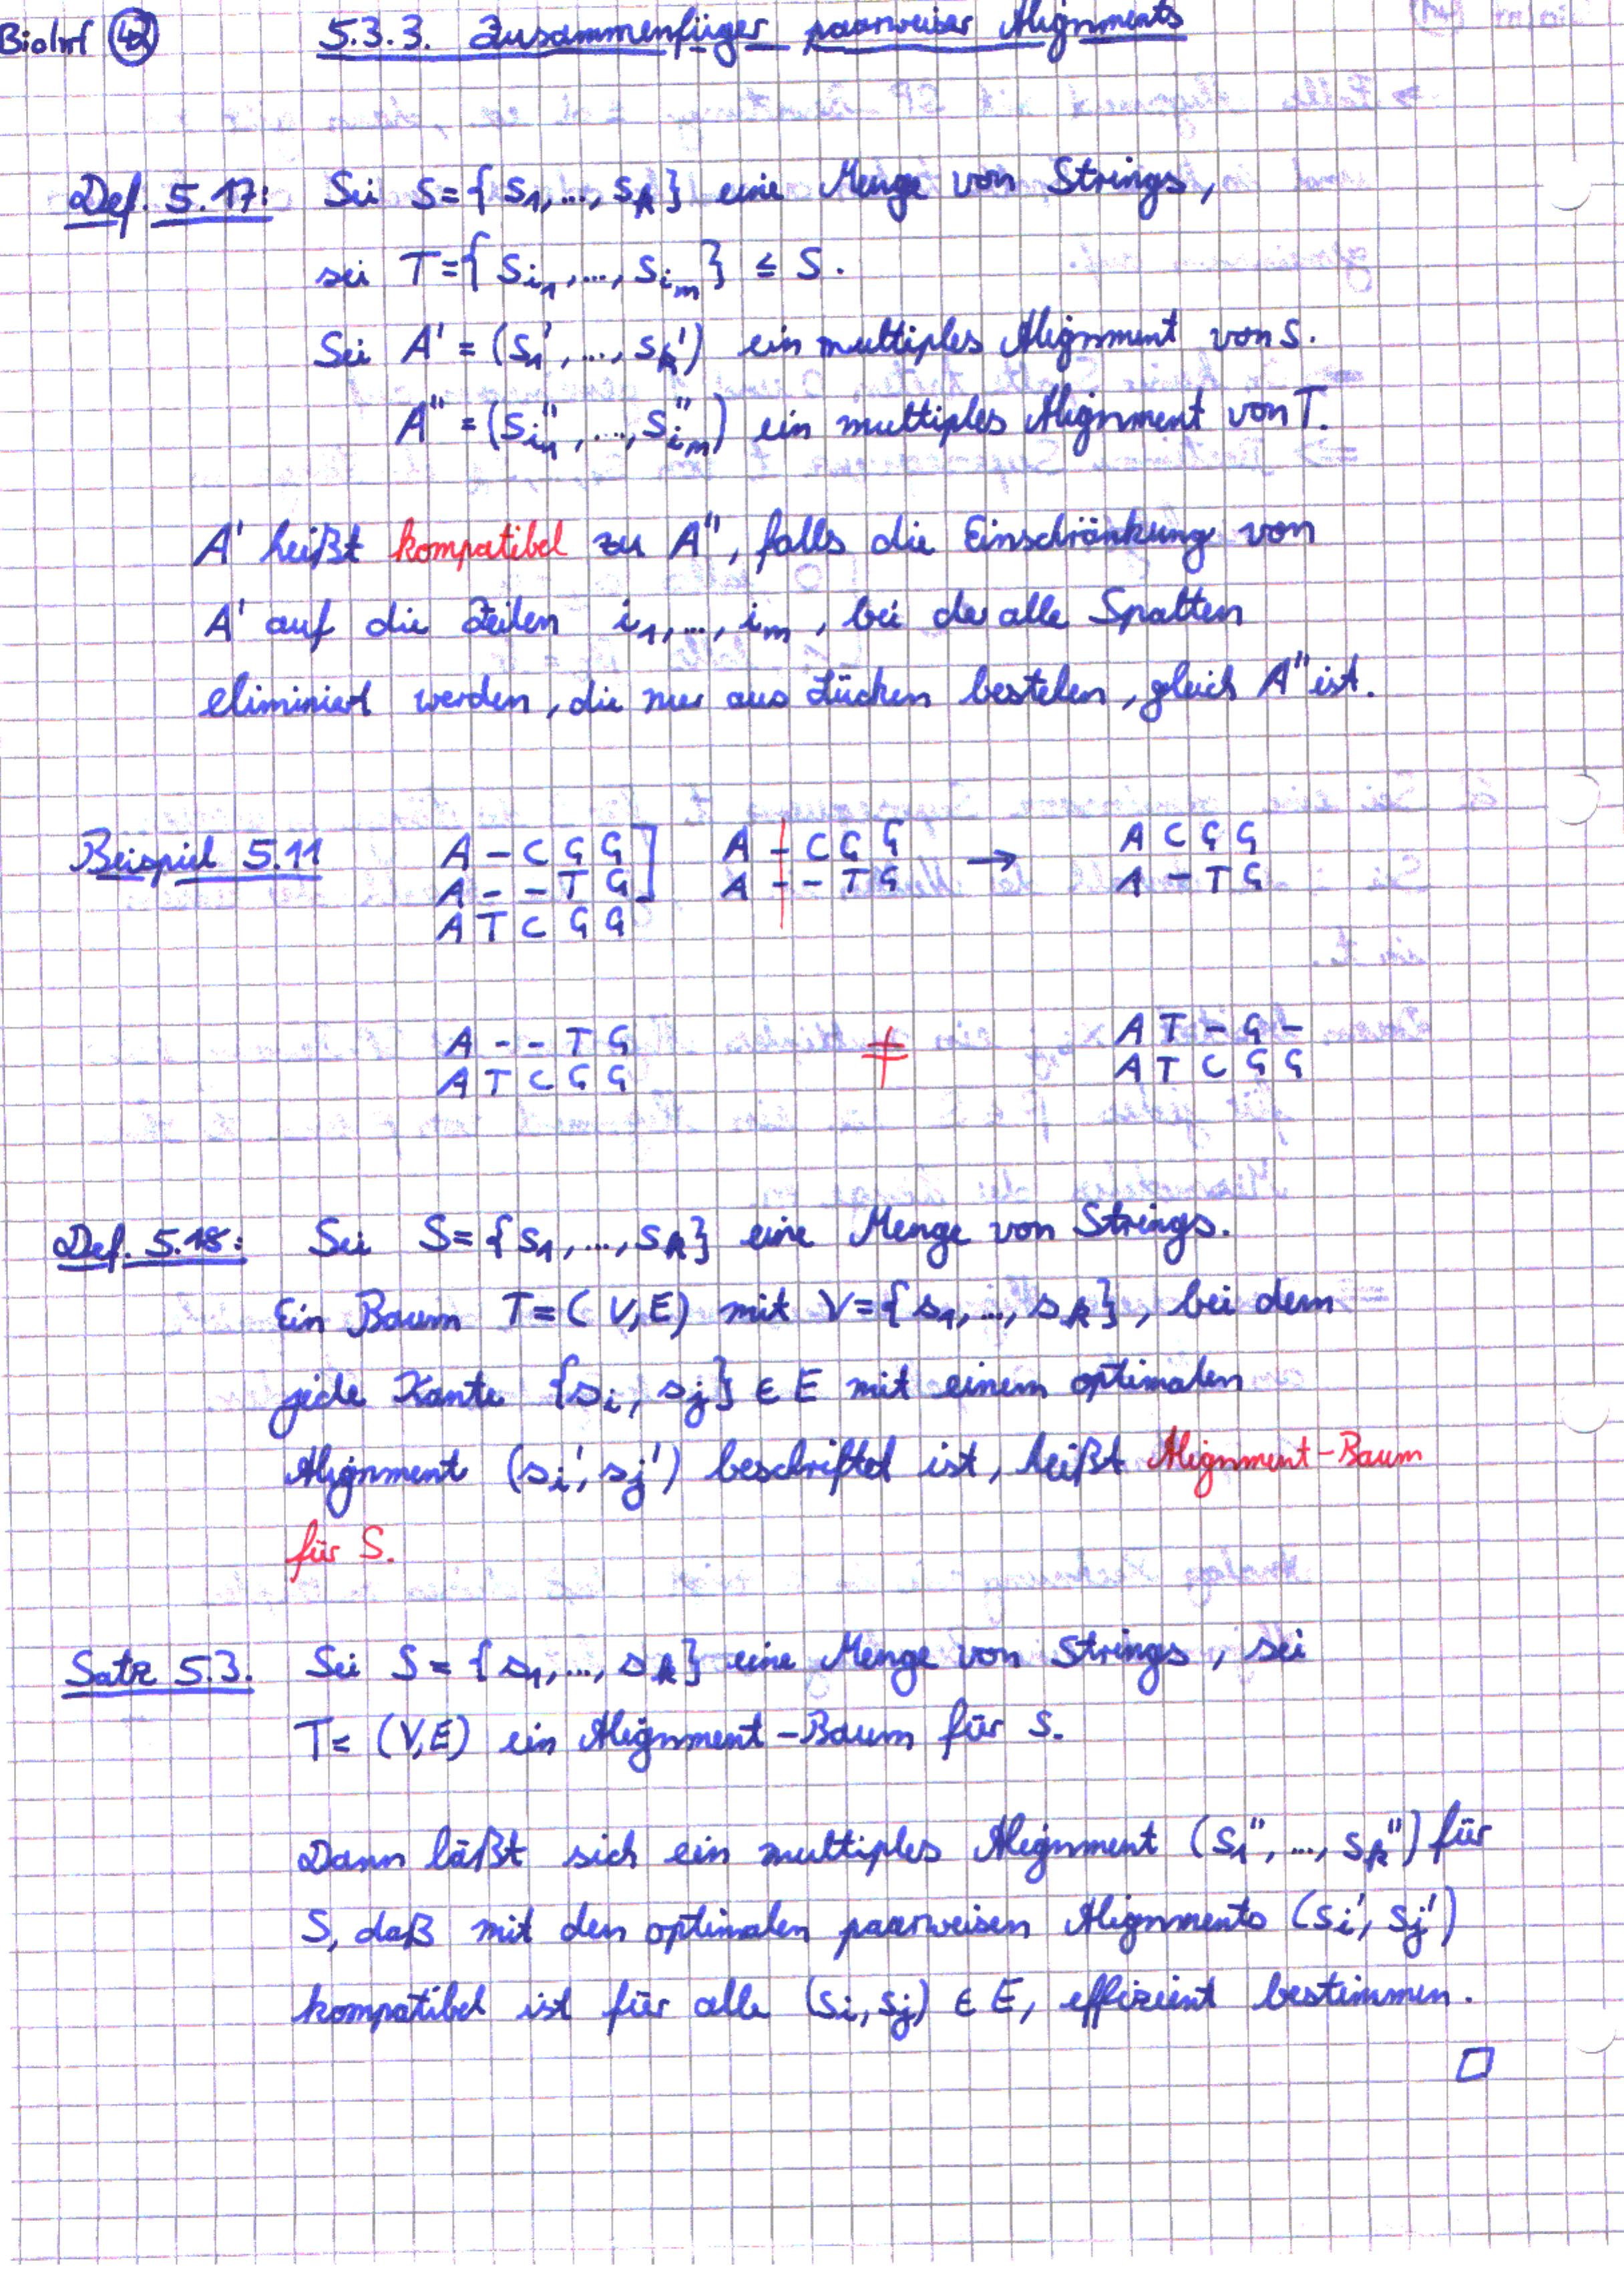 BioInf 42 5.3.3. Zusammenfügen paarweiser Alignments
Def. 5.17: Sei S={s₁,...,sₖ} eine Menge von Strings,
sei T={s_i₁,...,s_iₘ} ≤ S.
Sei A' = (s₁',...,sₖ') ein multiples Alignment von S.
A'' = (s_i₁'',...,s_iₘ'') ein multiples Alignment von T.
A' heißt kompatibel zu A'', falls die Einschränkung von
A' auf die Zeilen i₁,...,iₘ, bei der alle Spalten
eliminiert werden, die nur aus Lücken bestehen, gleich A'' ist.
Beispiel 5.11 A - C G G ] A - C G G → A C G G
A - - T G A - - T G A - T G
A T C G G
A - - T G ≠ A T - G -
A T C G G A T C G G
Def. 5.18: Sei S={s₁,...,sₖ} eine Menge von Strings.
Ein Baum T=(V,E) mit V={s₁,...,sₖ}, bei dem
jede Kante {sᵢ, sⱼ} ∈ E mit einem optimalen
Alignment (sᵢ', sⱼ') beschriftet ist, heißt Alignment-Baum
für S.
Satz 5.3. Sei S = {s₁,...,sₖ} eine Menge von Strings, sei
T= (V,E) ein Alignment-Baum für S.
Dann läßt sich ein multiples Alignment (s₁'',...,sₖ'') für
S, daß mit den optimalen paarweisen Alignments (sᵢ', sⱼ')
kompatibel ist für alle (sᵢ,sⱼ) ∈ E, effizient bestimmen.
□